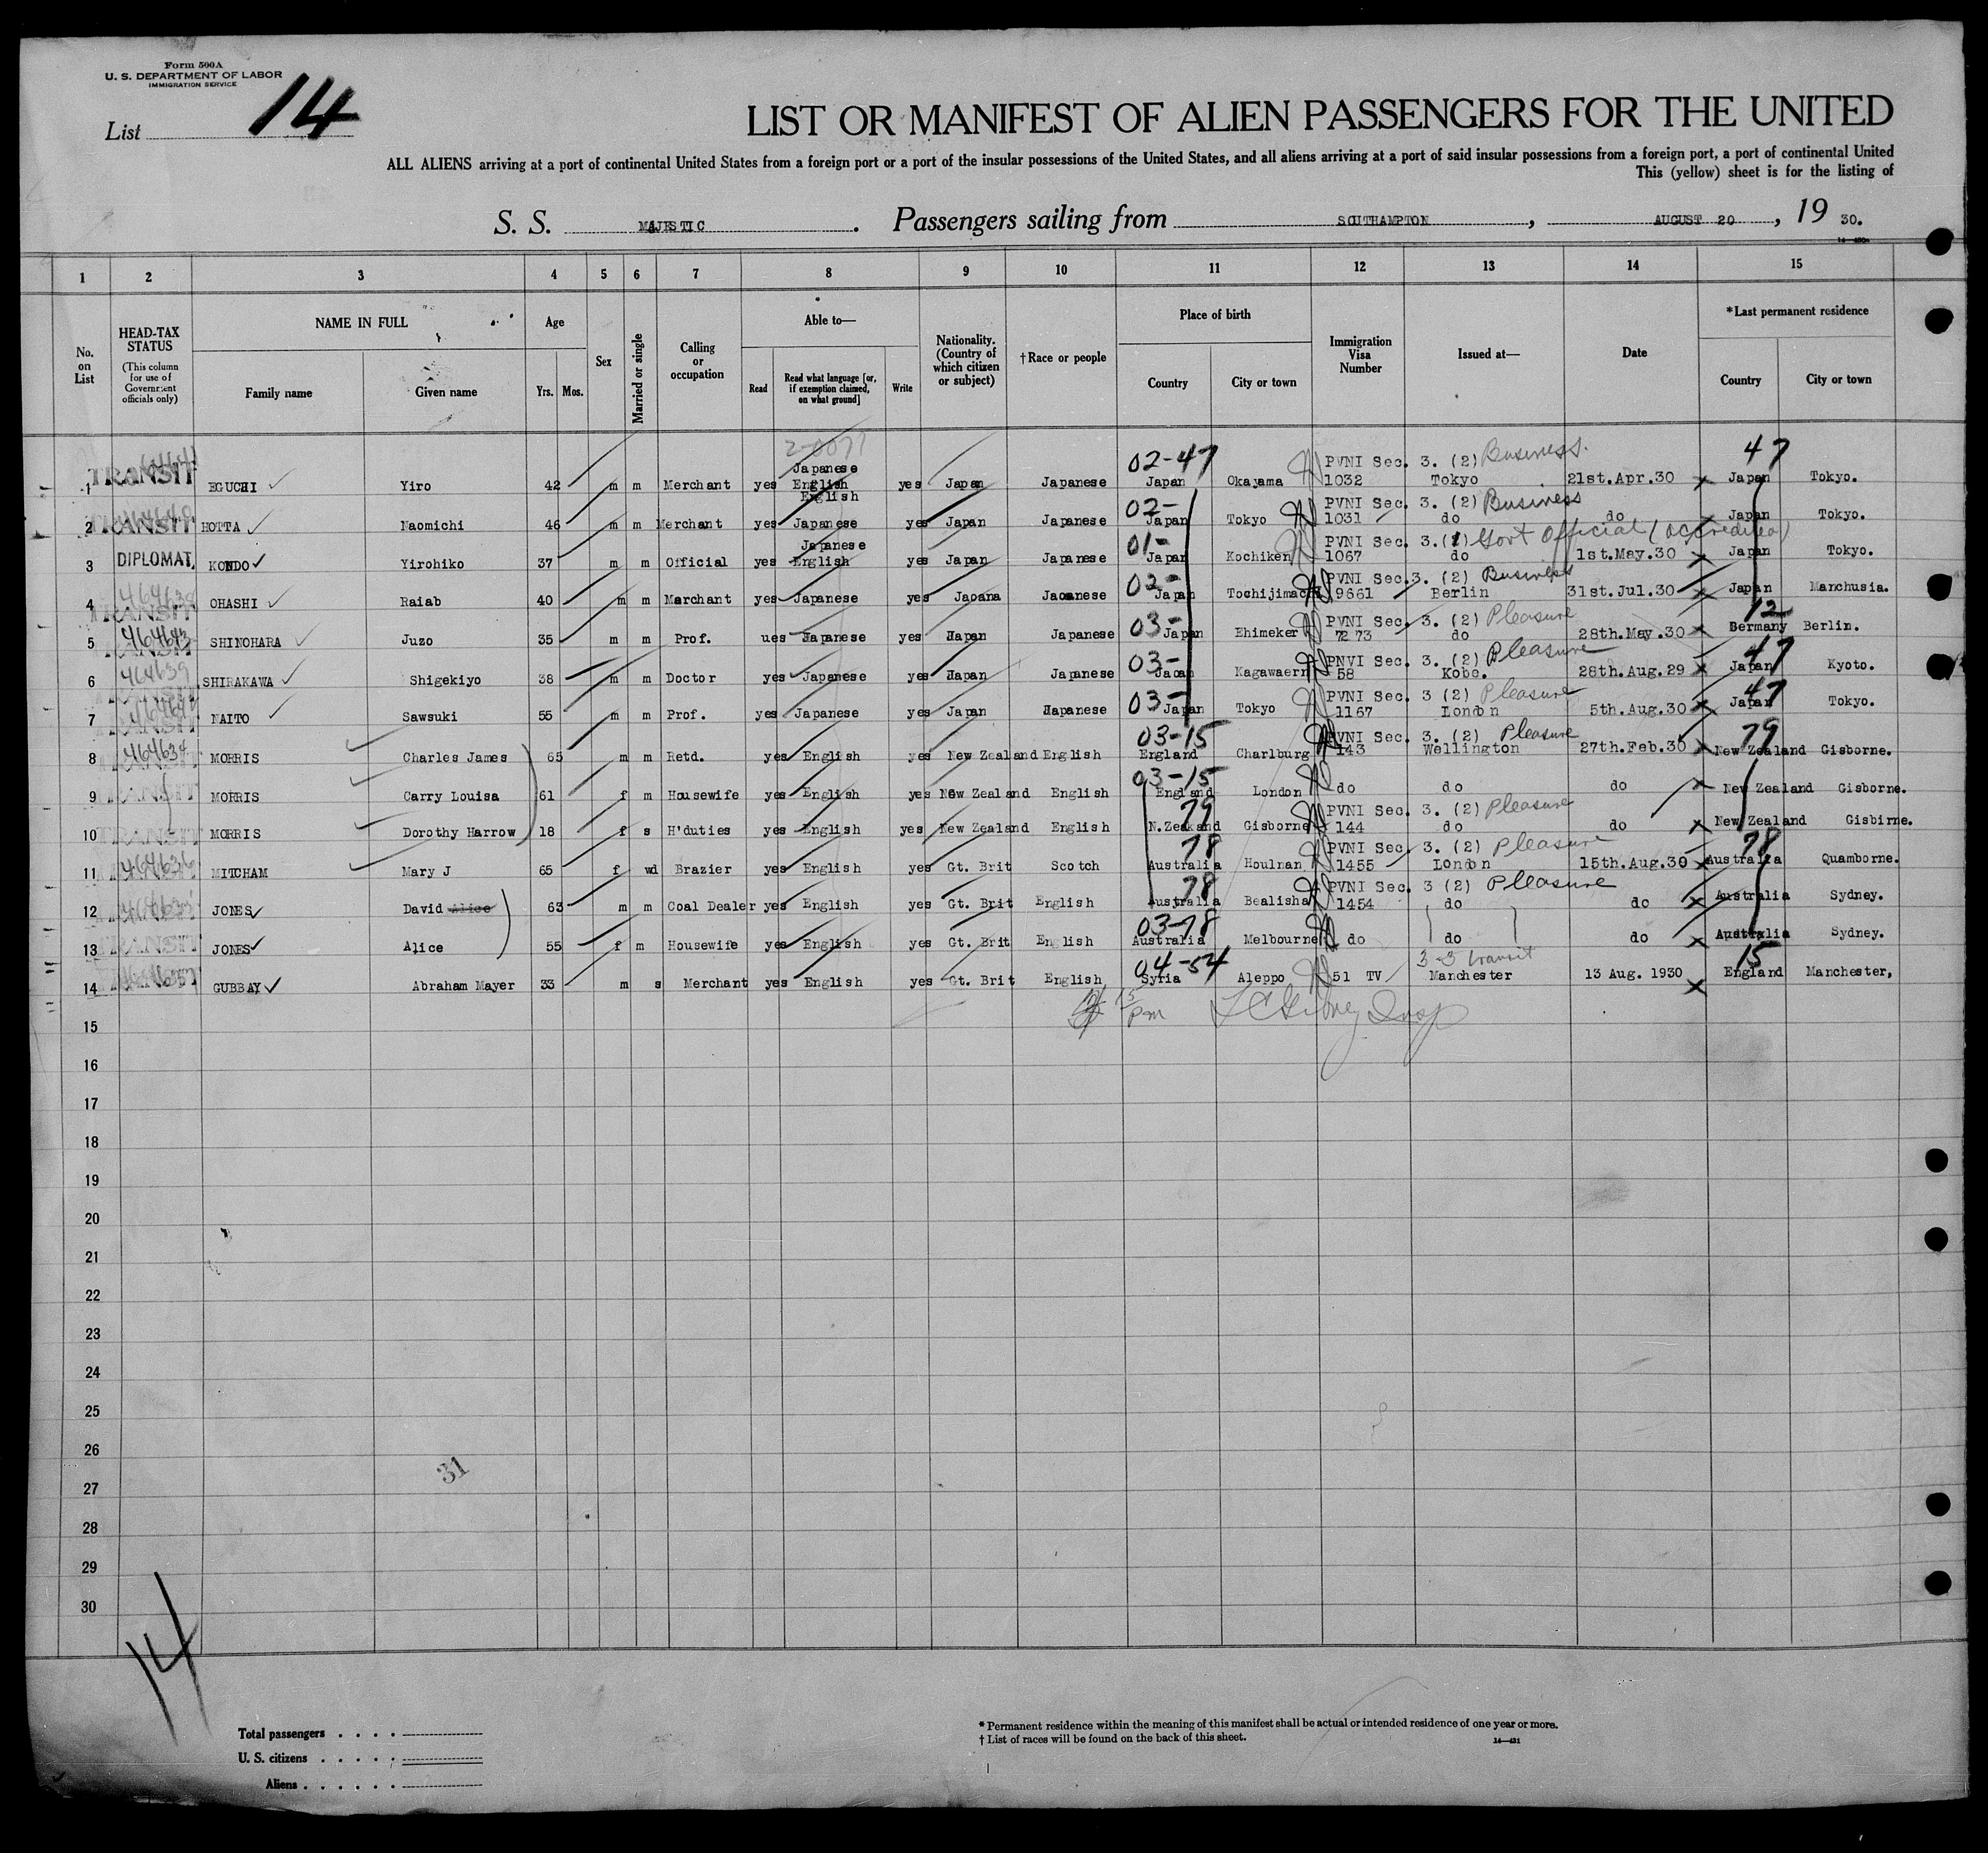 Form 500A
U. S. DEPARTMENT OF LABOR
IMMIGRATION SERVICE
List 14
LIST OR MANIFEST OF ALIEN PASSENGERS FOR THE UNITED
ALL ALIENS arriving at a port of continental United States from a foreign port or a port of the insular possessions of the United States, and all aliens arriving at a port of said insular possessions from a foreign port, a port of continental United
This (yellow) sheet is for the listing of
S. S. MAJESTIC. Passengers sailing from SOUTHAMPTON, AUGUST 20, 19 30.
1 2 3 4 5 6 7 8 9 10 11 12 13 14 15
No. on List
HEAD-TAX STATUS (This column for use of Government officials only)
NAME IN FULL Family name Given name
Age Yrs. Mos.
Sex
Married or single
Calling or occupation
Able to— Read Read what language [or, if exemption claimed, on what ground] Write
Nationality. (Country of which citizen or subject)
†Race or people
Place of birth Country City or town
Immigration Visa Number
Issued at—
Date
*Last permanent residence Country City or town
2-0077
1 TRANSIT EGUCHI Yiro 42 m m Merchant yes Japanese English yes Japan Japanese 02-47 Japan Okayama PVNI Sec. 3. (2) Business. 1032 Tokyo 21st.Apr.30 47 Japan Tokyo.
2 TRANSIT HOTTA Naomichi 46 m m Merchant yes English Japanese yes Japan Japanese 02- Japan Tokyo PVNI Sec. 3. (2) Business 1031 do do Japan Tokyo.
3 DIPLOMAT. KONDO Yirohiko 37 m m Official yes Japanese English yes Japan Japanese 01- Japan Kochiken PVNI Sec. 3.(1) Govt Official (accredited) 1067 do 1st.May.30 Japan Tokyo.
4 464638 TRANSIT OHASHI Raiab 40 m m Merchant yes Japanese yes Jaoana Jaoanese 02- Japan Tochijimachi PVNI Sec.3. (2) Business 9661 Berlin 31st.Jul.30 Japan Manchusia.
5 464643 SHINOHARA Juzo 35 m m Prof. ues Japanese yes Japan Japanese 03- Japan Ehimeker PVNI Sec. 3. (2) Pleasure 7273 do 28th.May.30 12 Bermany Berlin.
6 464639 SHIRAKAWA Shigekiyo 38 m m Doctor yes Japanese yes Japan Japanese 03- Jaoan Kagawaern PNVI Sec. 3. (2) Pleasure 58 Kobe. 28th.Aug.29 47 Japan Kyoto.
7 NAITO Sawsuki 55 m m Prof. yes Japanese yes Japan Japanese 03- Japan Tokyo PVNI Sec. 3 (2) Pleasure 1167 London 5th.Aug.30 47 Japan Tokyo.
8 464634 MORRIS Charles James 65 m m Retd. yes English yes New Zealand English 03-15 England Charlburg PVNI Sec. 3. (2) Pleasure 143 Wellington 27th.Feb.30 79 New Zealand Gisborne.
9 TRANSIT MORRIS Carry Louisa 61 f m Housewife yes English yes New Zealand English 03-15 England London do do do New Zealand Gisborne.
10 TRANSIT MORRIS Dorothy Harrow 18 f s H'duties yes English yes New Zealand English 79 N.Zealand Gisborne PVNI Sec. 3. (2) Pleasure 144 do do New Zealand Gisbirne.
11 464636 MITCHAM Mary J 65 f wd Brazier yes English yes Gt. Brit Scotch 78 Australia Houlnan PVNI Sec. 3. (2) Pleasure 1455 London 15th.Aug.30 78 Australia Quamborne.
12 JONES David Alice 63 m m Coal Dealer yes English yes Gt. Brit English 78 Australia Bealisha PVNI Sec. 3 (2) Pleasure 1454 do do Australia Sydney.
13 TRANSIT JONES Alice 55 f m Housewife yes English yes Gt. Brit English 03-78 Australia Melbourne do do do Australia Sydney.
14 GUBBAY Abraham Mayer 33 m s Merchant yes English yes Gt. Brit English 04-54 Syria Aleppo 51 TV 3-3 transit Manchester 13 Aug. 1930 15 England Manchester,
pm
15
16
17
18
19
20
21
22
23
24
25
26
31
27
28
29
30
14
Total passengers . . . .
U. S. citizens . . . . .
Aliens . . . . . .
* Permanent residence within the meaning of this manifest shall be actual or intended residence of one year or more.
† List of races will be found on the back of this sheet.
14—431